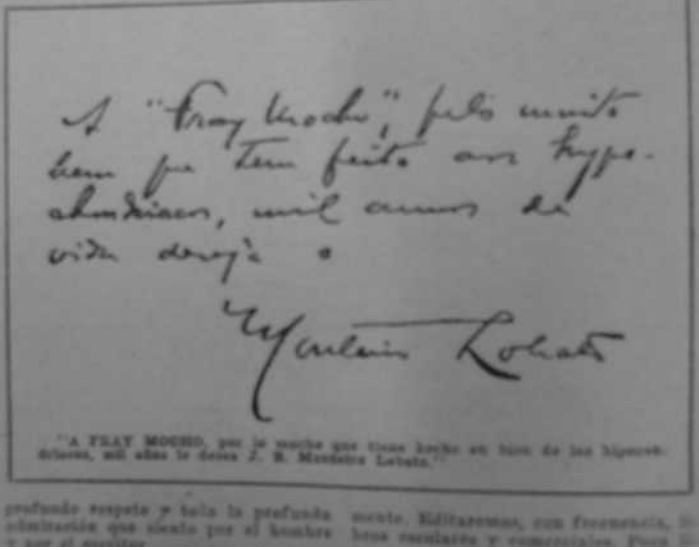 A "Fray Mocho", pelo muito
bem que tem feito aos hypo-
chondriacos, mil annos de
vida deseja o
Monteiro Lobato
"A FRAY MOCHO, por lo mucho que tiene hecho en bien de los hipocon-
driacos, mil años le desea J. B. Monteiro Lobato."
profundo respeto y toda la profunda
admiración que siento por el hombre
y por el escritor
mente. Editaremos, con frecuencia,
bros escolares y comerciales. Para